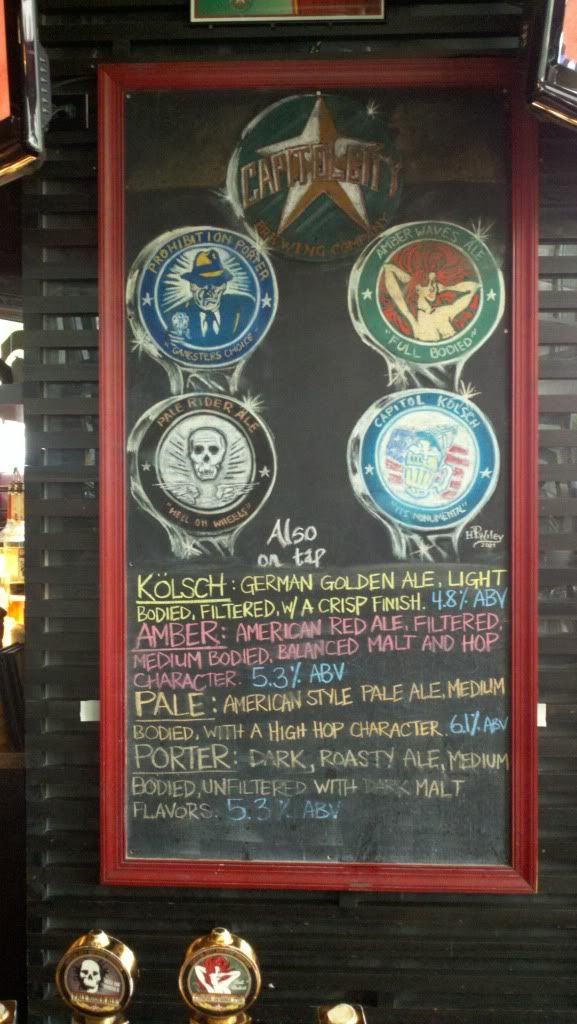 CAPITOL CITY
BREWING COMPANY
PROHIBITION PORTER
"GANGSTERS CHOICE"
AMBER WAVES ALE
"FULL BODIED"
PALE RIDER ALE
"HELL ON WHEELS"
CAPITOL KÖLSCH
"IT'S MONUMENTAL"
Also
on tap
KÖLSCH: GERMAN GOLDEN ALE, LIGHT
BODIED, FILTERED, W/ A CRISP FINISH. 4.8% ABV
AMBER: AMERICAN RED ALE, FILTERED,
MEDIUM BODIED, BALANCED MALT AND HOP
CHARACTER. 5.3% ABV
PALE: AMERICAN STYLE PALE ALE, MEDIUM
BODIED, WITH A HIGH HOP CHARACTER. 6.1% ABV
PORTER: DARK, ROASTY ALE, MEDIUM
BODIED, UNFILTERED WITH DARK MALT
FLAVORS. 5.3% ABV
PALE RIDER ALE